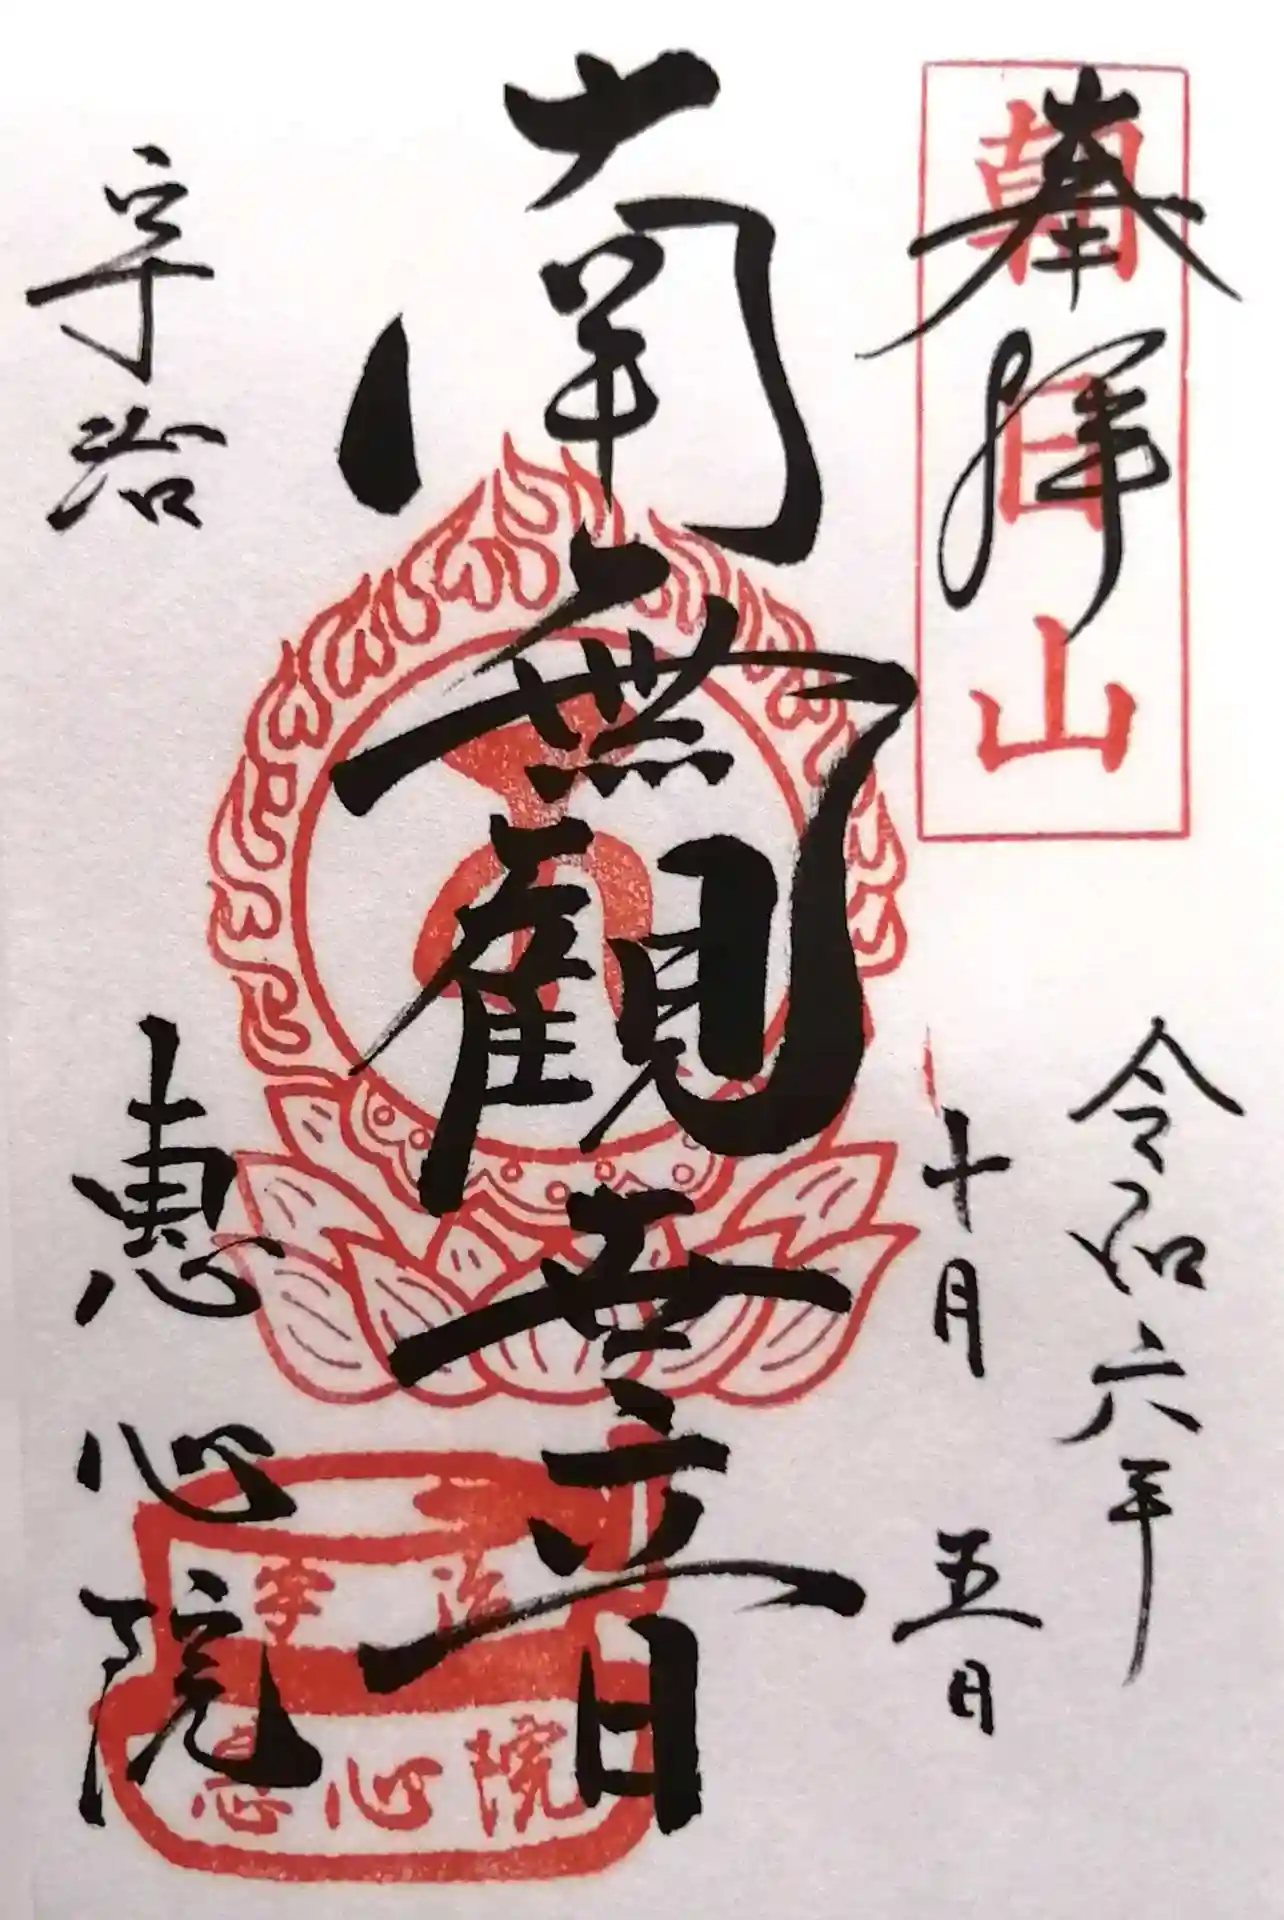 奉拝
朝日山
令和六年
十月五日
南無観世音
宇治
惠心院
宇治
恵心院